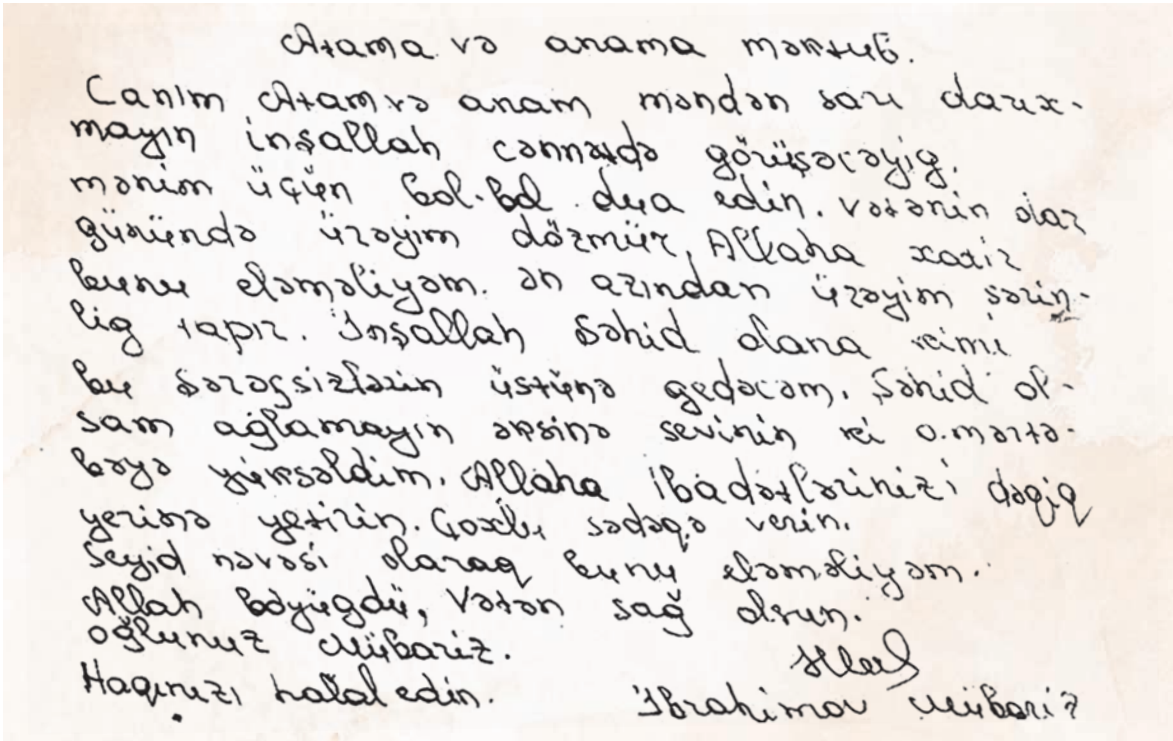 Atama və anama məktub.
Canım Atam və anam məndən sarı darıx-
mayın inşallah cənnətdə görüşəcəyig.
mənim üçün bol-bol dua edin. Vətənin dar
günündə ürəyim dözmür, Allaha xatir
bunu eləməliyəm. ən azından ürəyim sərin-
lig tapır. İnşallah Şəhid olana kimi
bu şərəfsizlərin üstünə gedəcəm. Şəhid ol-
sam ağlamayın əksinə sevinin ki o.mərtə-
bəyə yüksəldim. Allaha ibadətlərinizi dəqiq
yerinə yetirin. Çoxlu sədəqə verin.
Seyid nəvəsi olaraq bunu eləməliyəm.
Allah böyügdü, Vətən sağ olsun.
oğlunuz Mübariz.
Haqınızı halal edin. İbrahimov Mübariz